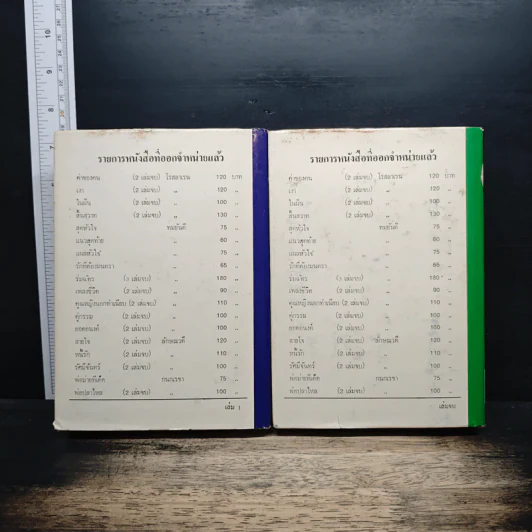 รายการหนังสือที่ออกจำหน่ายแล้ว
ค่าของคน (2 เล่มจบ) โรสลาเรน 120 บาท
เงา (2 เล่มจบ) ,, 120 ,,
ในฝัน (2 เล่มจบ) ,, 100 ,,
(2 เล่มจบ) ,, 130 ,,
สุดหัวใจ ทมยันตี 75 ,,
แนวสุดท้าย ,, 60 ,,
แผลหัวใจ ,, 75 ,,
รักที่ต้องมนตรา ,, 65 ,,
ร่มฉัตร (3 เล่มจบ) ,, 180 ,,
เพลงชีวิต (2 เล่มจบ) ,, 90 ,,
คุณหญิงนอกทำเนียบ (2 เล่มจบ) ,, 110 ,,
คู่กรรม (2 เล่มจบ) ,, 100 ,,
ยอดอนงค์ (2 เล่มจบ) ,, 100 ,,
สายใจ (2 เล่มจบ) ลักษณวดี 120 ,,
หนี้รัก (2 เล่มจบ) ,, 110 ,,
รัศมีจันทร์ (2 เล่มจบ) ,, 100 ,,
พ่อม่ายทีเด็ด กนกเรขา 75 ,,
พ่อปลาไหล (2 เล่มจบ) ,, 100 ,,
เล่ม 1
รายการหนังสือที่ออกจำหน่ายแล้ว
ค่าของคน (2 เล่มจบ) โรสลาเรน 120 บาท
เงา (2 เล่มจบ) ,, 120 ,,
ในฝัน (2 เล่มจบ) ,, 100 ,,
(2 เล่มจบ) ,, 130 ,,
สุดหัวใจ ทมยันตี 75 ,,
แนวสุดท้าย ,, 60 ,,
แผลหัวใจ ,, 75 ,,
รักที่ต้องมนตรา ,, 65 ,,
ร่มฉัตร (3 เล่มจบ) ,, 180 ,,
เพลงชีวิต (2 เล่มจบ) ,, 90 ,,
คุณหญิงนอกทำเนียบ (2 เล่มจบ) ,, 110 ,,
คู่กรรม (2 เล่มจบ) ,, 100 ,,
ยอดอนงค์ (2 เล่มจบ) ,, 100 ,,
สายใจ (2 เล่มจบ) ลักษณวดี 120 ,,
หนี้รัก (2 เล่มจบ) ,, 110 ,,
รัศมีจันทร์ (2 เล่มจบ) ,, 100 ,,
พ่อม่ายทีเด็ด กนกเรขา 75 ,,
พ่อปลาไหล (2 เล่มจบ) ,, 100 ,,
เล่มจบ